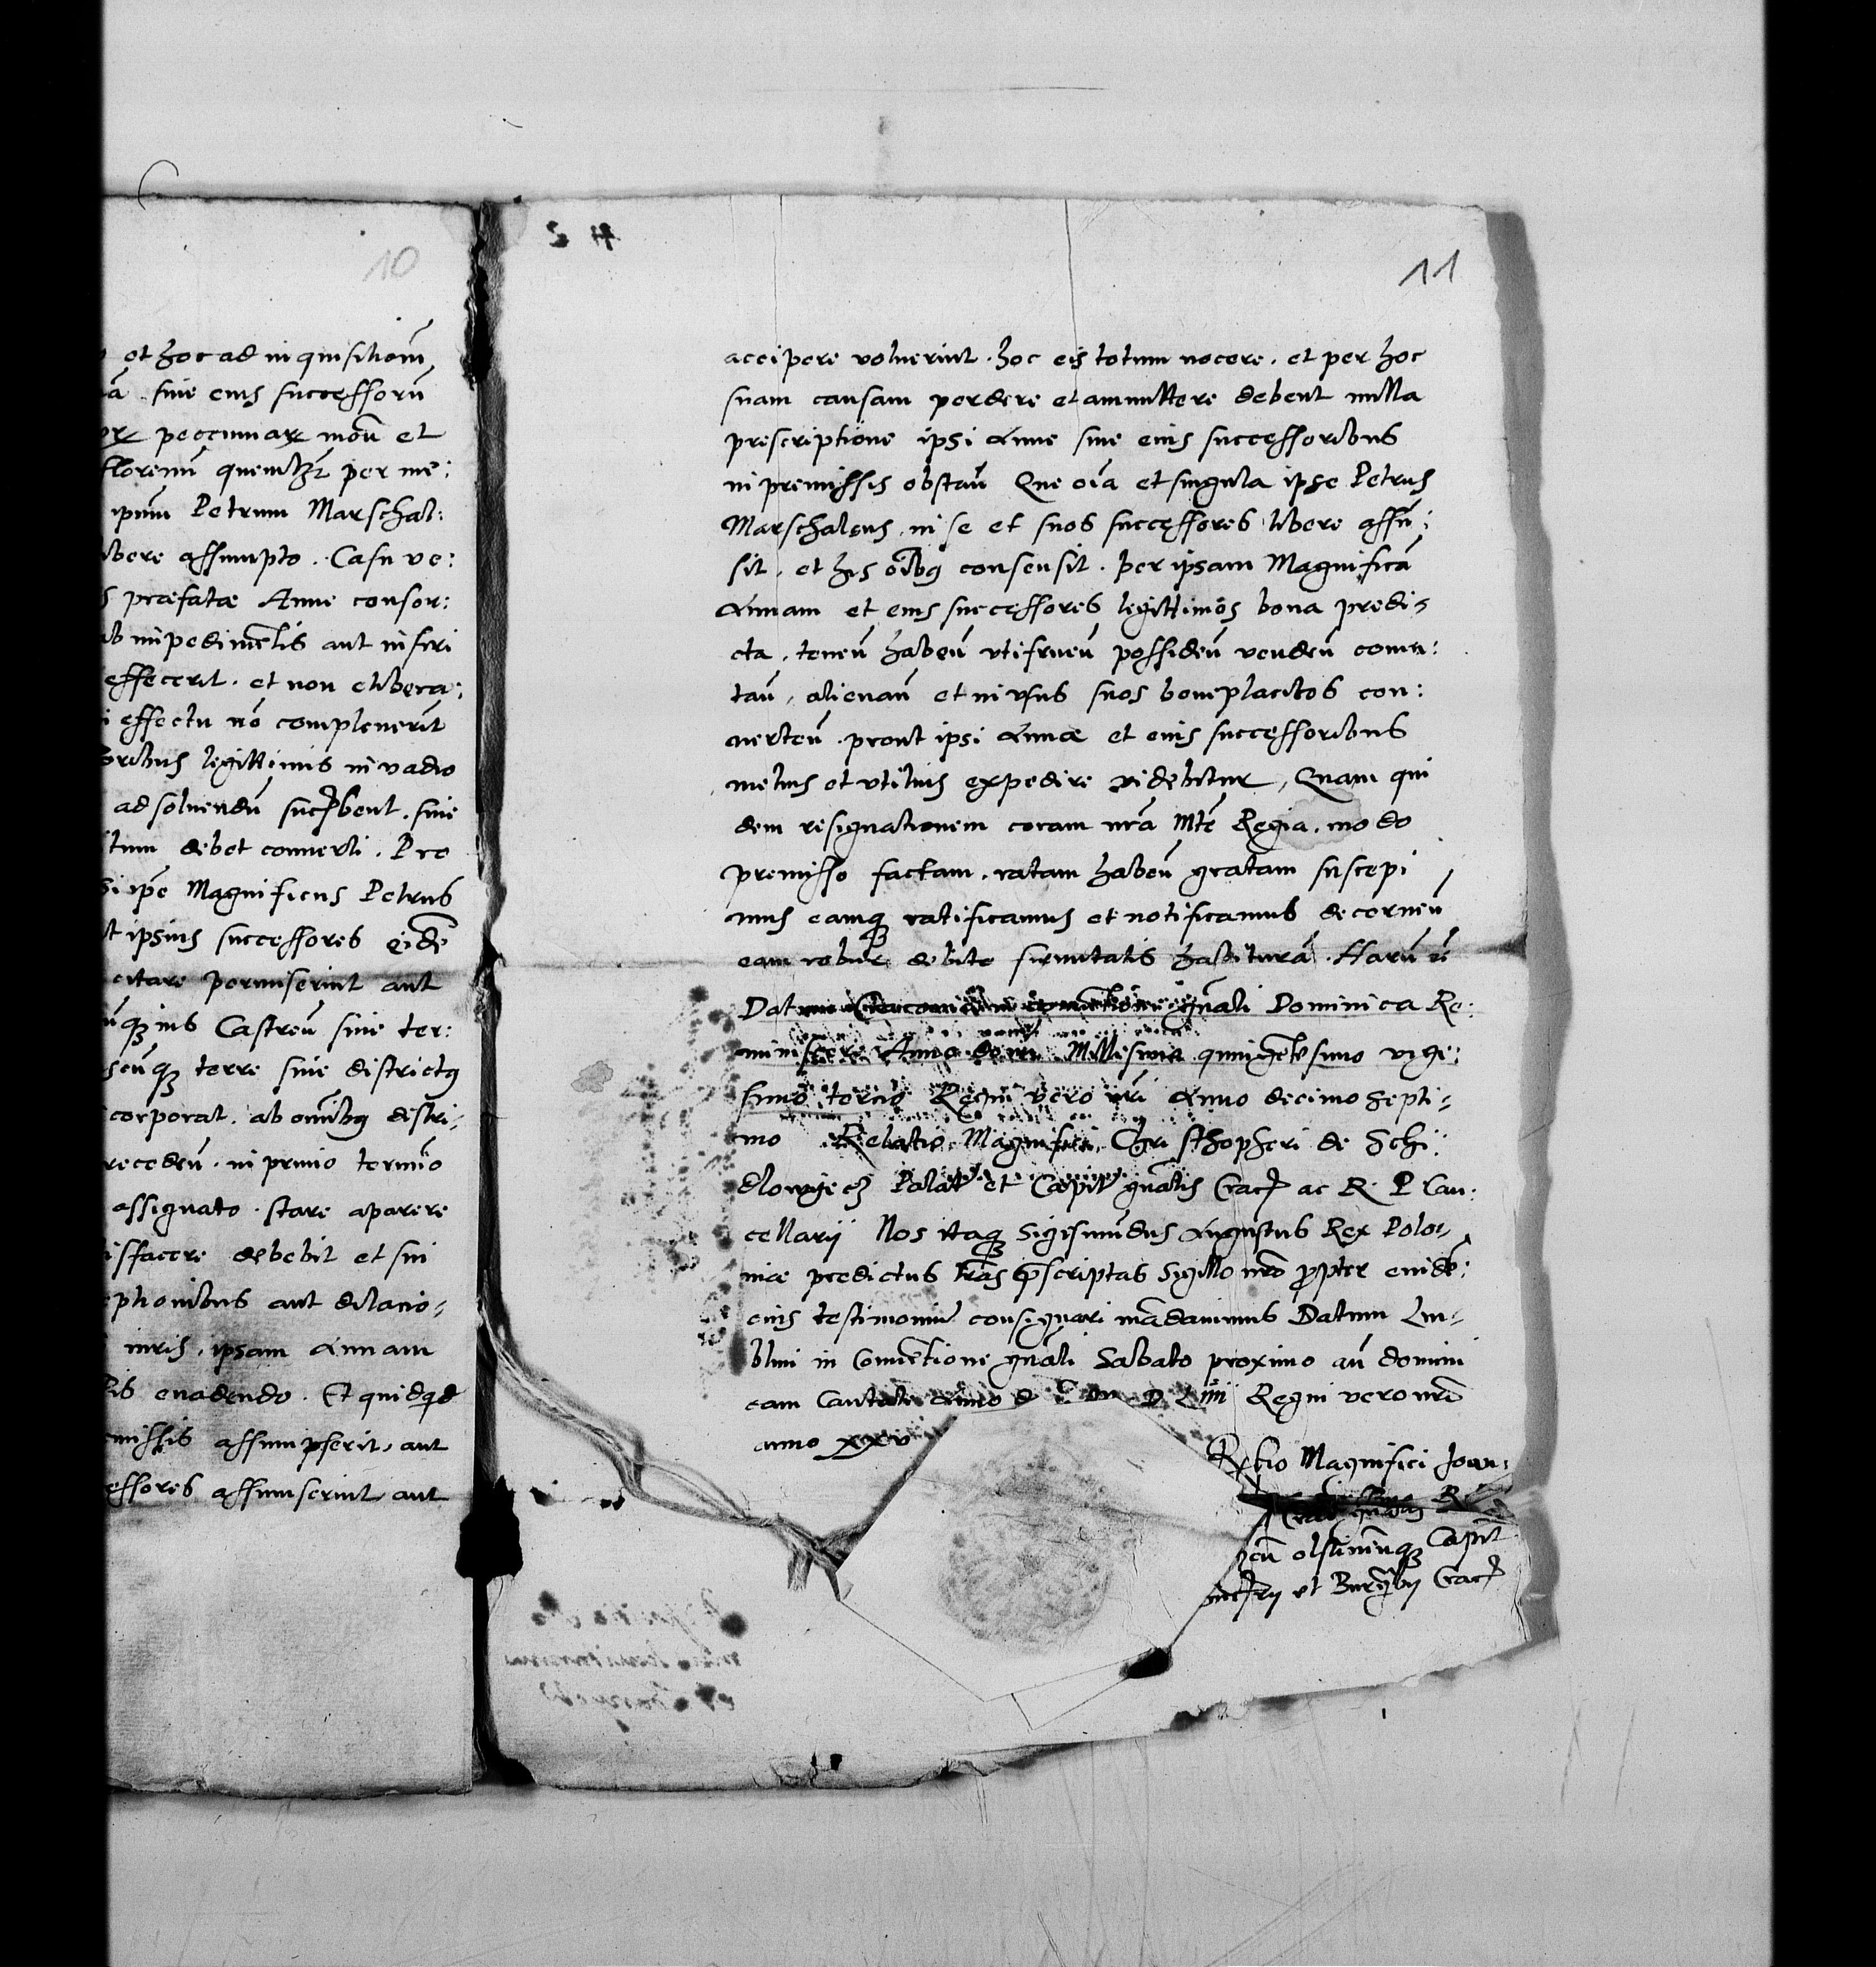 10
et hoc ad inquisitioem
siue eius successorũ
peccuniarꝝ mõu et
florenũ quemlꝫt per me:
ipm̃ Petrum Marschal:
libere assumpto . Casu ve:
præfatæ Anne consor:
impedimẽtis aut inferi
effecerit . et non elibera:
effectu nõ compleuerit
legittimis in vadio
ad soluendũ succ̃bent . siue
debet conuerti . Pro
Si ip̃e Magnificus Petrus
et ipsius successores eidẽ
citare permiserint aut
Castreñ siue ter:
terre siue districtꝰ
corporat . ab omĩbꝰ distri:
recedeñ . in primo termĩo
assignato . stare a parere
debebit et sui
aut dilacio:
iuris . ipsam Annam
euadendo . Et quidqd
assumpserit , aut
assumserint aut
11
accipere voluerint . hoc eis totum nocere . et per hoc
suam causam perdere et ammittere debent nulla
prescriptione ipsi Anne siue eius successoribus
in premissis obstañ Que oĩa et singula ipse Petrus
Marschalcus . in se et suos successores libere assũ:
sit . et his oĩbꝰ consensit . per ipsam Magnificã
Annam et eius successores legittimos bona predi:
cta . teneñ habeñ vtifrueñ possideñ vendeñ comu:
tañ , alienañ et in vsus suos beneplacitos con:
uerteñ . prout ipsi Annæ et eius successoribus
melius et vtilius expedire videbitur , Quam qui
dem resignationem coram nrã Mtẽ Regia . modo
premisso factam . ratam habeñ gratam suscepi
mus eamqꝫ ratificamus et notificamus decerneñ
eam robur debite firmitatis habiturã . Harũ
Datum Cracouiæ in conuentione gñali Dominica Re:
miniscere Anno domini Millesimo quingentesimo vige:
simo tercio Regni vero nri Anno decimo septi:
mo Relatio Magnifici Christhopheri de Schi:
dlowijecz Palati et Capit gñalis Crac̃ ac R. P. Can:
cellarij Nos itaqꝫ Sigismundus Augustus Rex Polo:
niæ predictus lrãs p̃scriptas Sigillo nrõ propter euidẽ:
cius testimoniũ consignari mãdauimus Datum Lu:
blini in Conuẽtione gñali Sabato proximo añ domini
cam Cantate Anno D LIIII Regni vero nrĩ
anno XXV
Rltio Magnifici Joan:
R
olstinẽnqꝫ Capit
et Burgrbij Crac̃